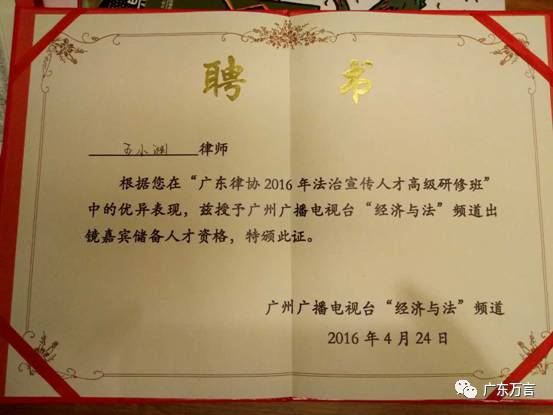 聘 书
王小渊 律师
根据您在“广东律协2016年法治宣传人才高级研修班”
中的优异表现，兹授予广州广播电视台“经济与法”频道出
镜嘉宾储备人才资格，特颁此证。
广州广播电视台“经济与法”频道
2016年4月24日
广东万言